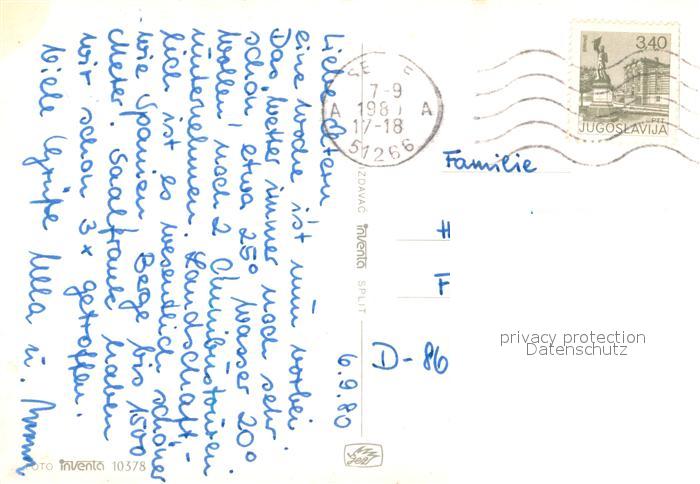 Liebe Eltern
eine Woche ist nun vorbei.
Das Wetter immer noch sehr
schön, etwa 25° Wasser 20°
Wollen noch 2 Omnibustouren
unternehmen. Landschaft-
lich ist es wesentlich schöner
wie Spanien. Berge bis 1500
Meter. Saalfrank haben
wir schon 3x getroffen.
Viele Grüße Ulla u.
6.9.80
IZDAVAČ inventa SPLIT
FOTO inventa 10378
7-9
1980
A A
17-18
51266
3,40
JUGOSLAVIJA
PTT
Familie
H
F
D-86
privacy protection
Datenschutz